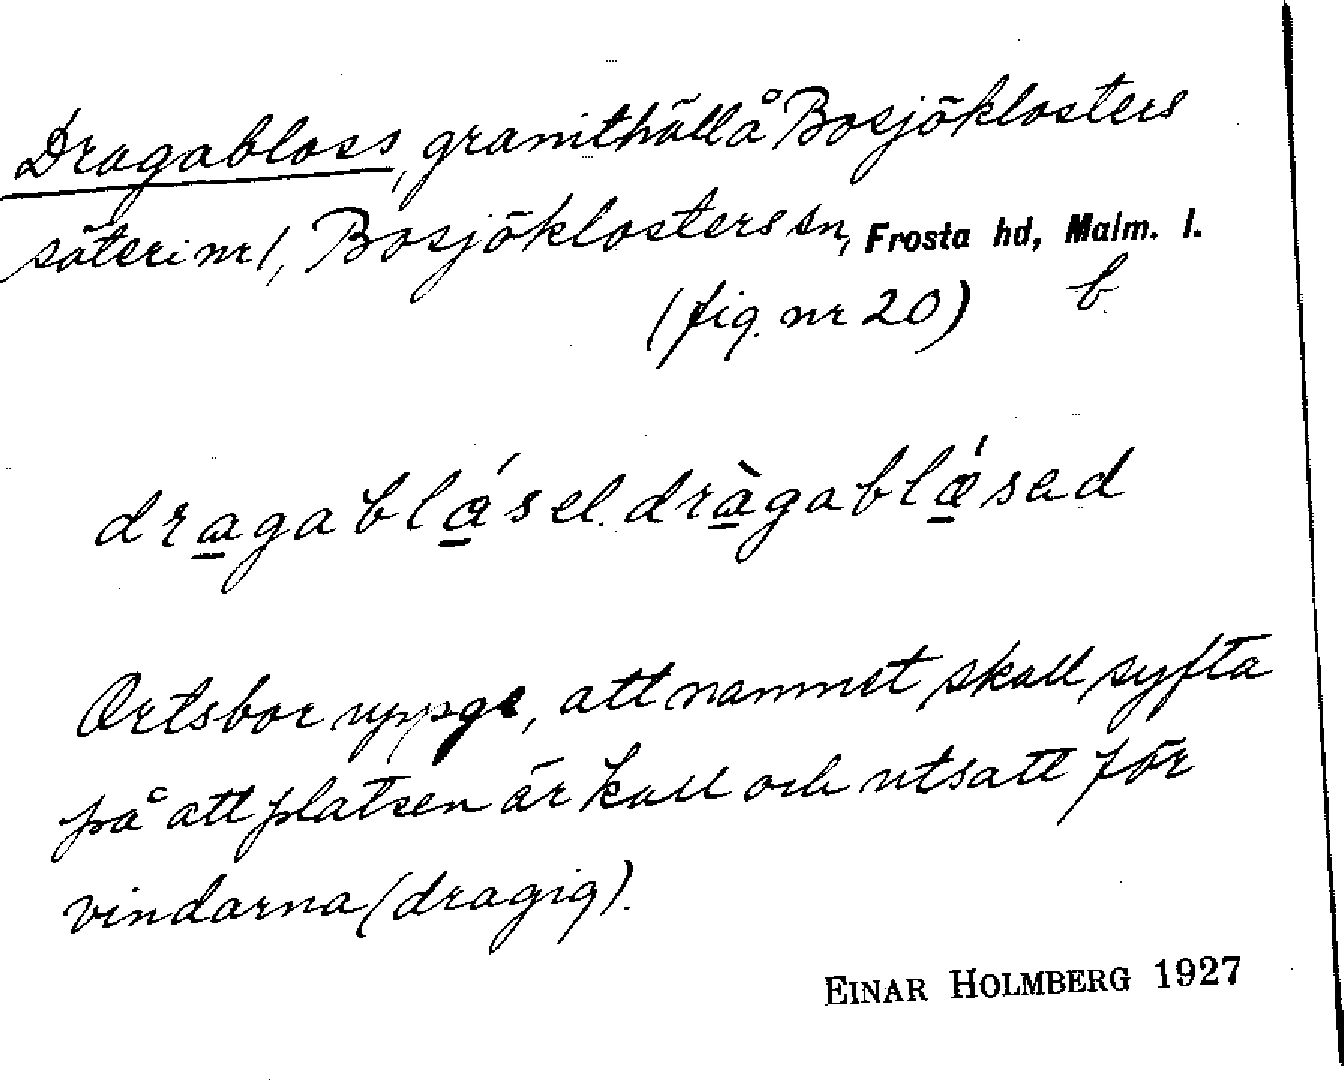 Dragabloss, granithäll å Bosjöklosters
säteri nr 1, Bosjöklosters sn, Frosta hd, Malm. l.
(fig. nr 20) b
dragablás el. dràgablǽsad
Ortsbor uppge, att namnet skall syfta
på att platsen är kall och utsatt för
vindarna (dragig).
EINAR HOLMBERG 1927